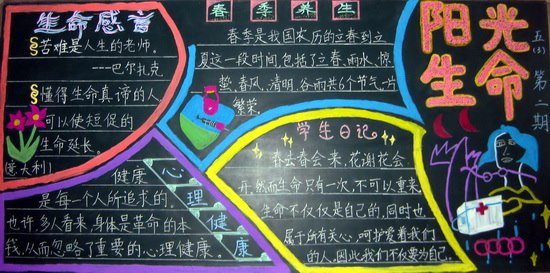 生命感言
§苦难是人生的老师。
---巴尔扎克
§懂得生命真谛的人
可以使短促的
生命延长。
(意大利)
春季养生
春季是我国农历的立春到立
夏这一段时间包括了立春、雨水、惊
蛰、春风、清明、谷雨共6个节气,片
繁荣。
阳光
生命
五(3)第二期
健康心理健康
是每一个人所追求的,
也许,多人看来,身体是革命的本
钱,从而忽略了重要的心理健康。
学生日记
春去春会来,花谢花会
开,然而生命只有一次,不可以重来。
生命不仅仅是自己的,同时也
属于所有关心,呵护爱着我们
的人,因此我们不仅要为自己.